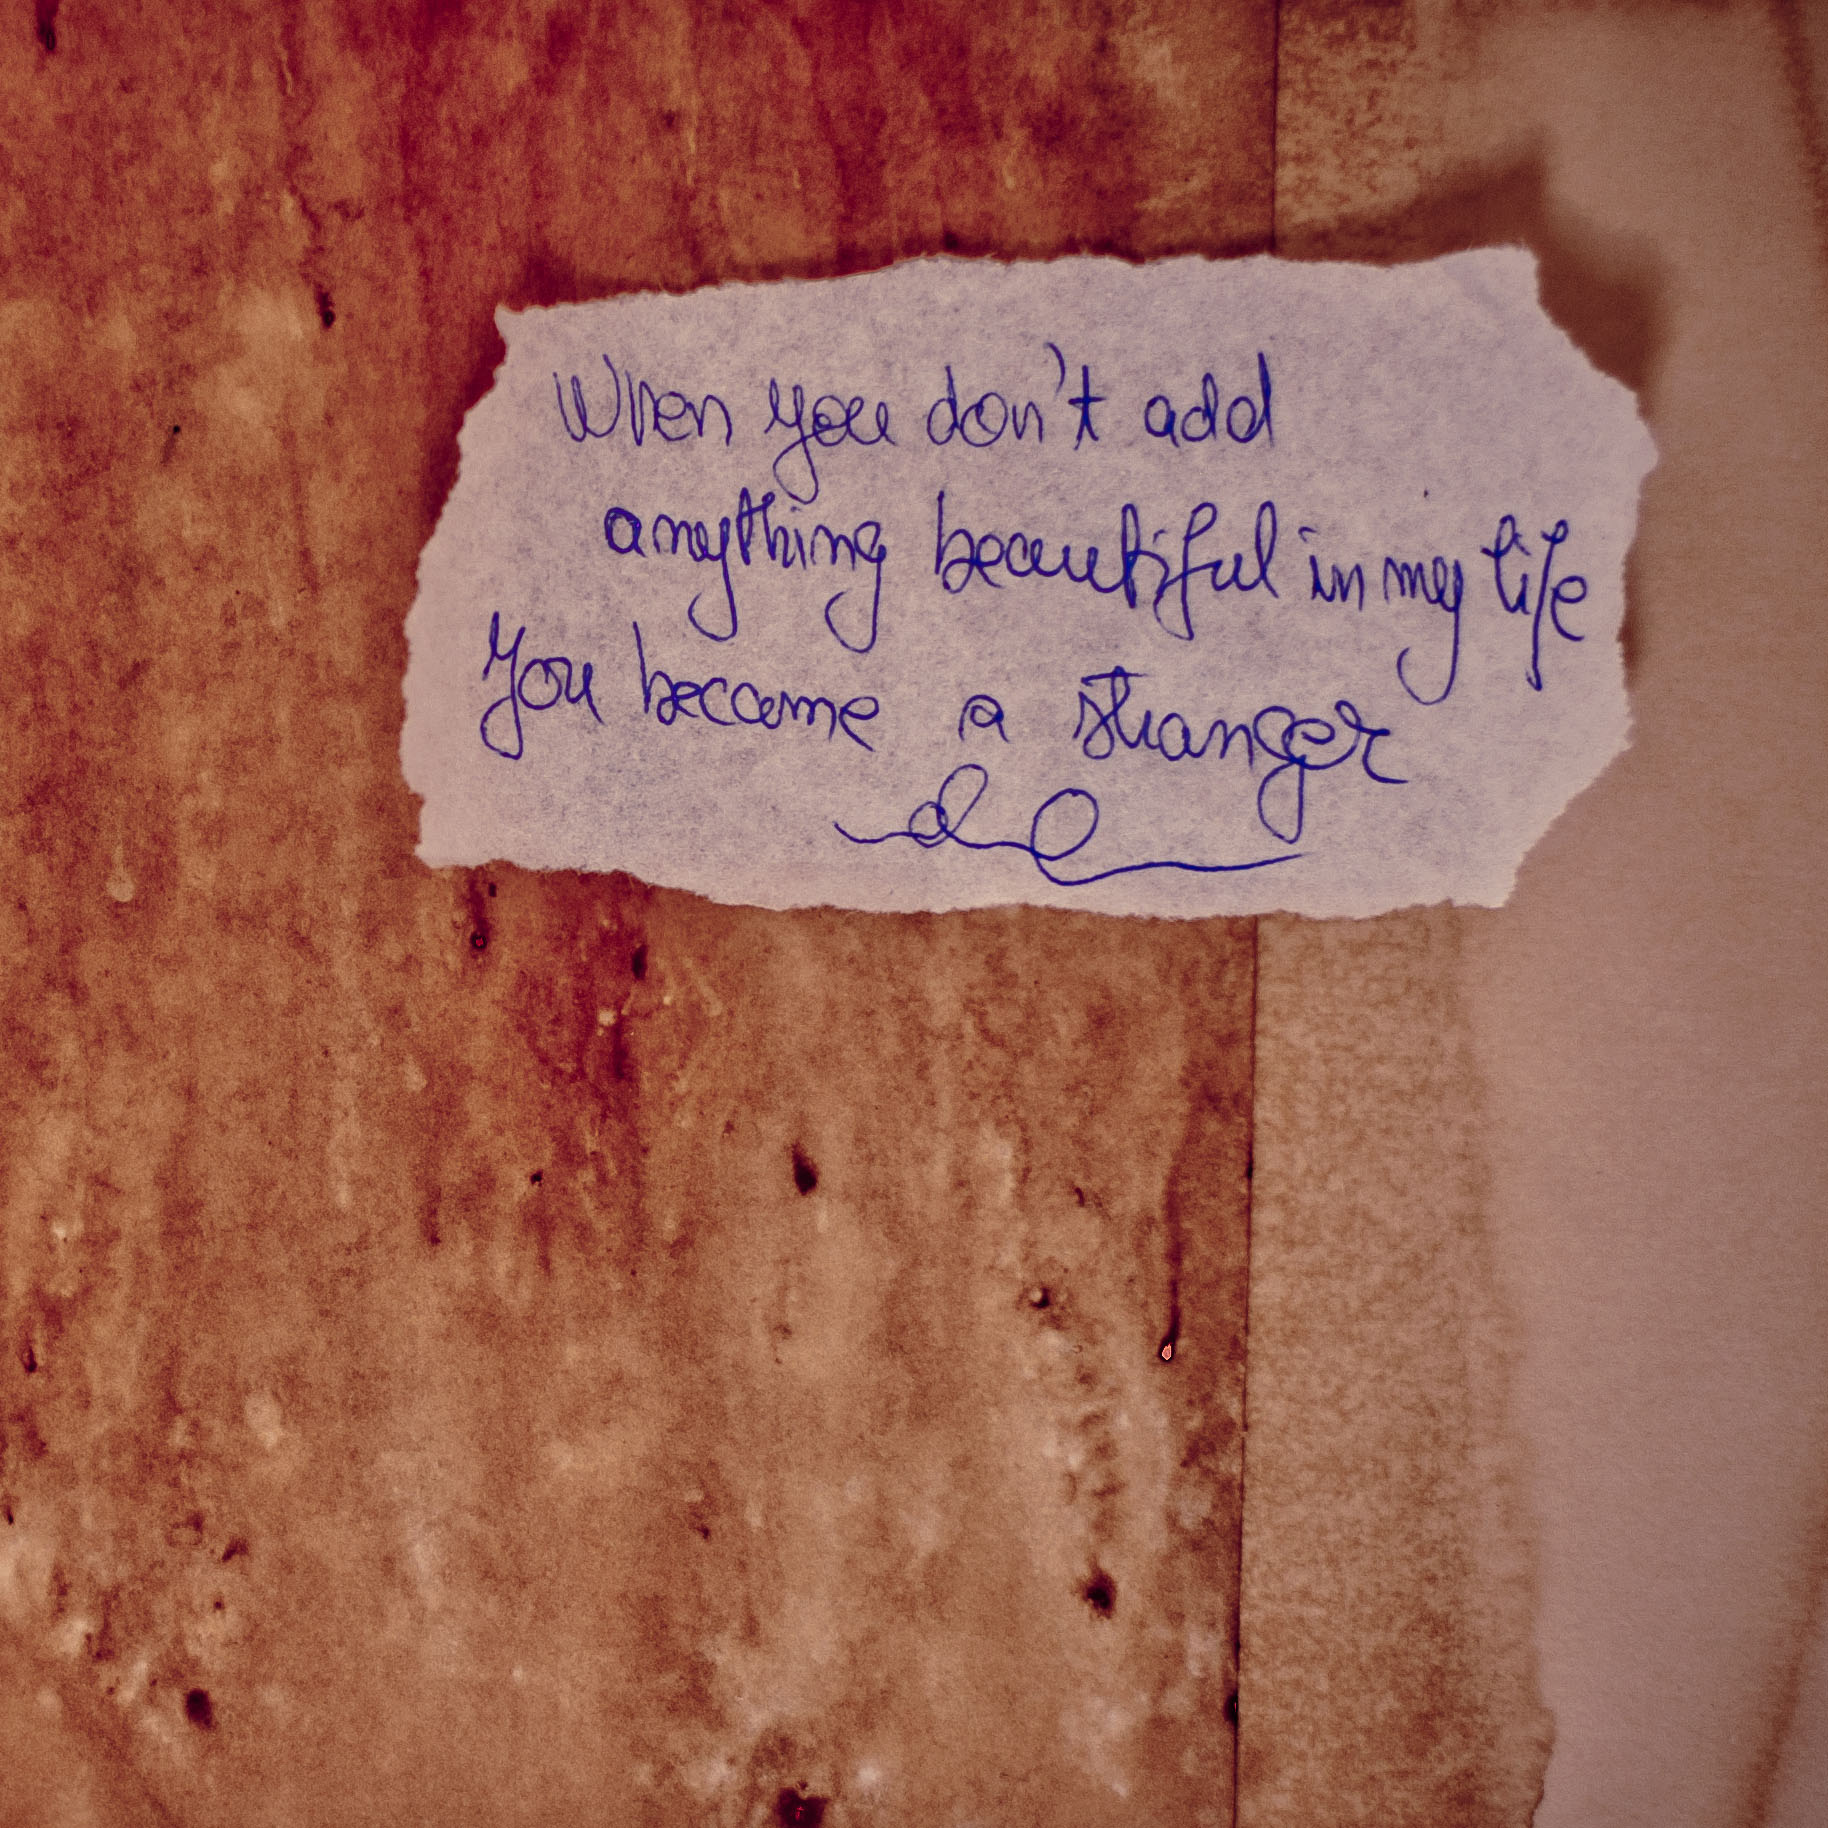 When you don't add
anything beautiful in my life
You become a stranger